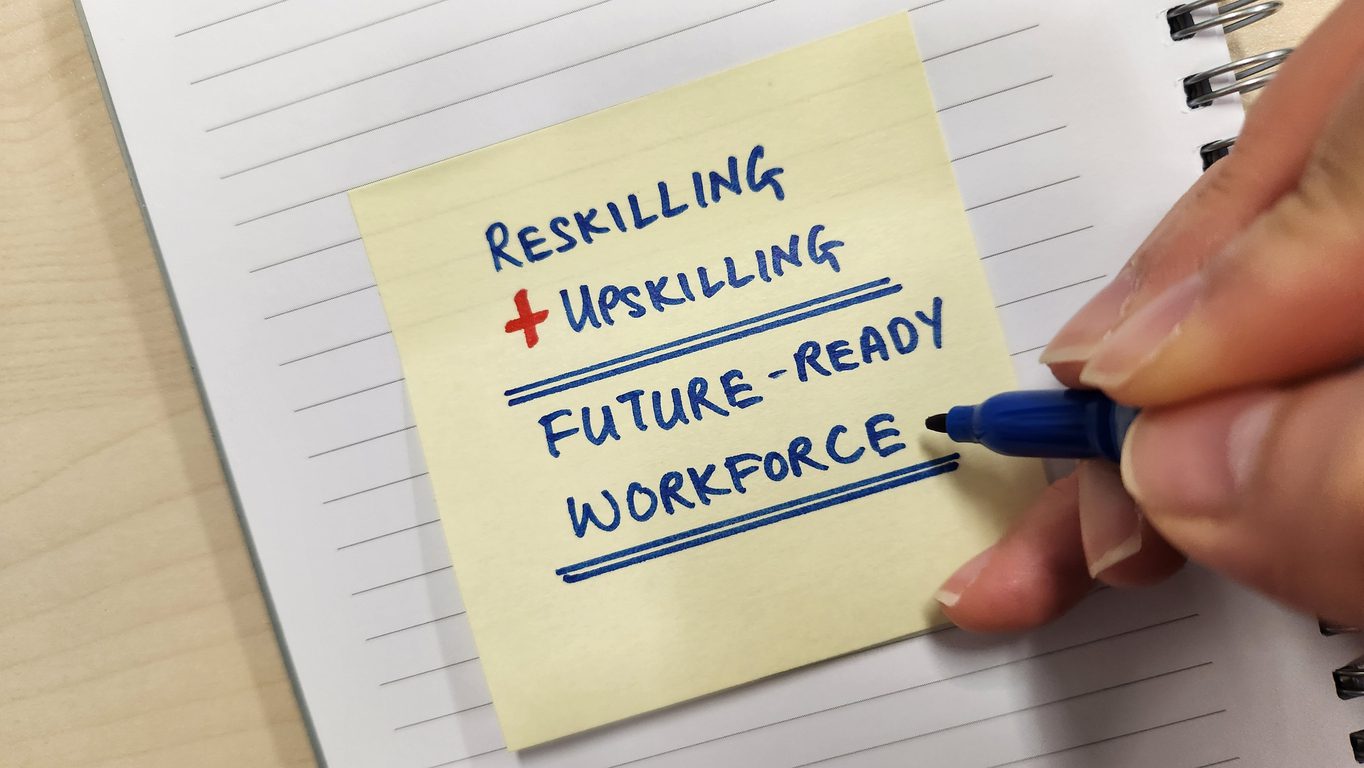 RESKILLING
+ UPSKILLING
FUTURE-READY
WORKFORCE